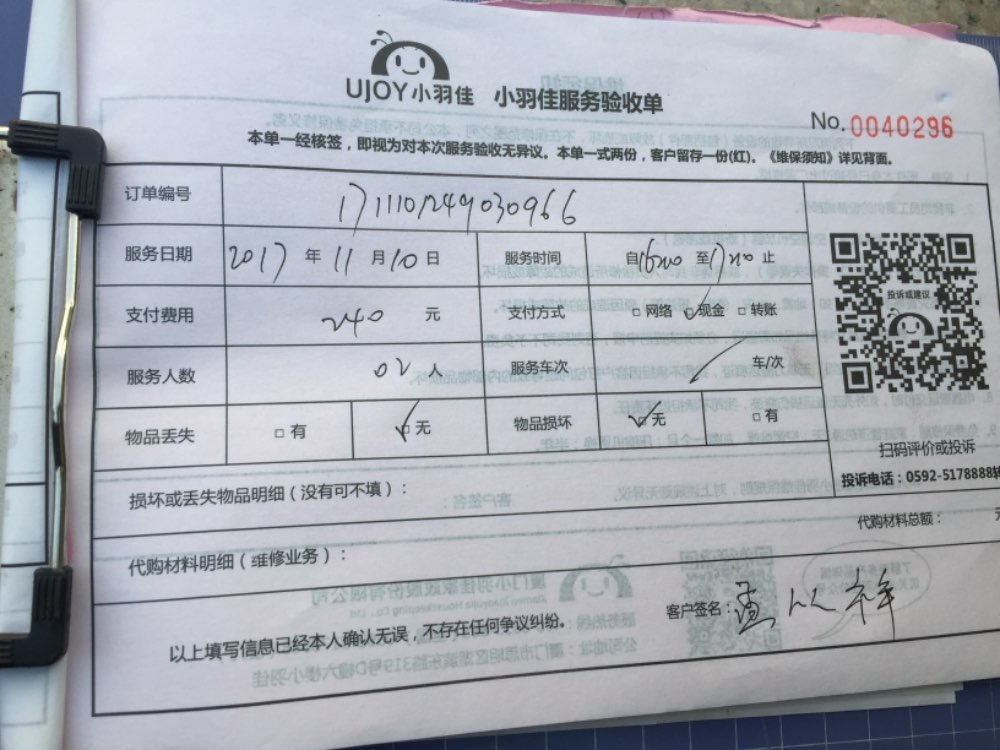 UJOY小羽佳 小羽佳服务验收单
No. 0040296
本单一经核签，即视为对本次服务验收无异议。本单一式两份，客户留存一份(红)。《维保须知》详见背面。
订单编号 1711101249030966
服务日期 2017 年 11 月 10 日 服务时间 自 至 止
支付费用 240 元 支付方式 □网络 □现金 □转账
服务人数 02人 服务车次 车/次
物品丢失 □有 □无 物品损坏 □无 □有
投诉或建议
扫码评价或投诉
投诉电话：0592-5178888转
损坏或丢失物品明细（没有可不填）：
代购材料总额：
代购材料明细（维修业务）：
客户签名：
以上填写信息已经本人确认无误，不存在任何争议纠纷。